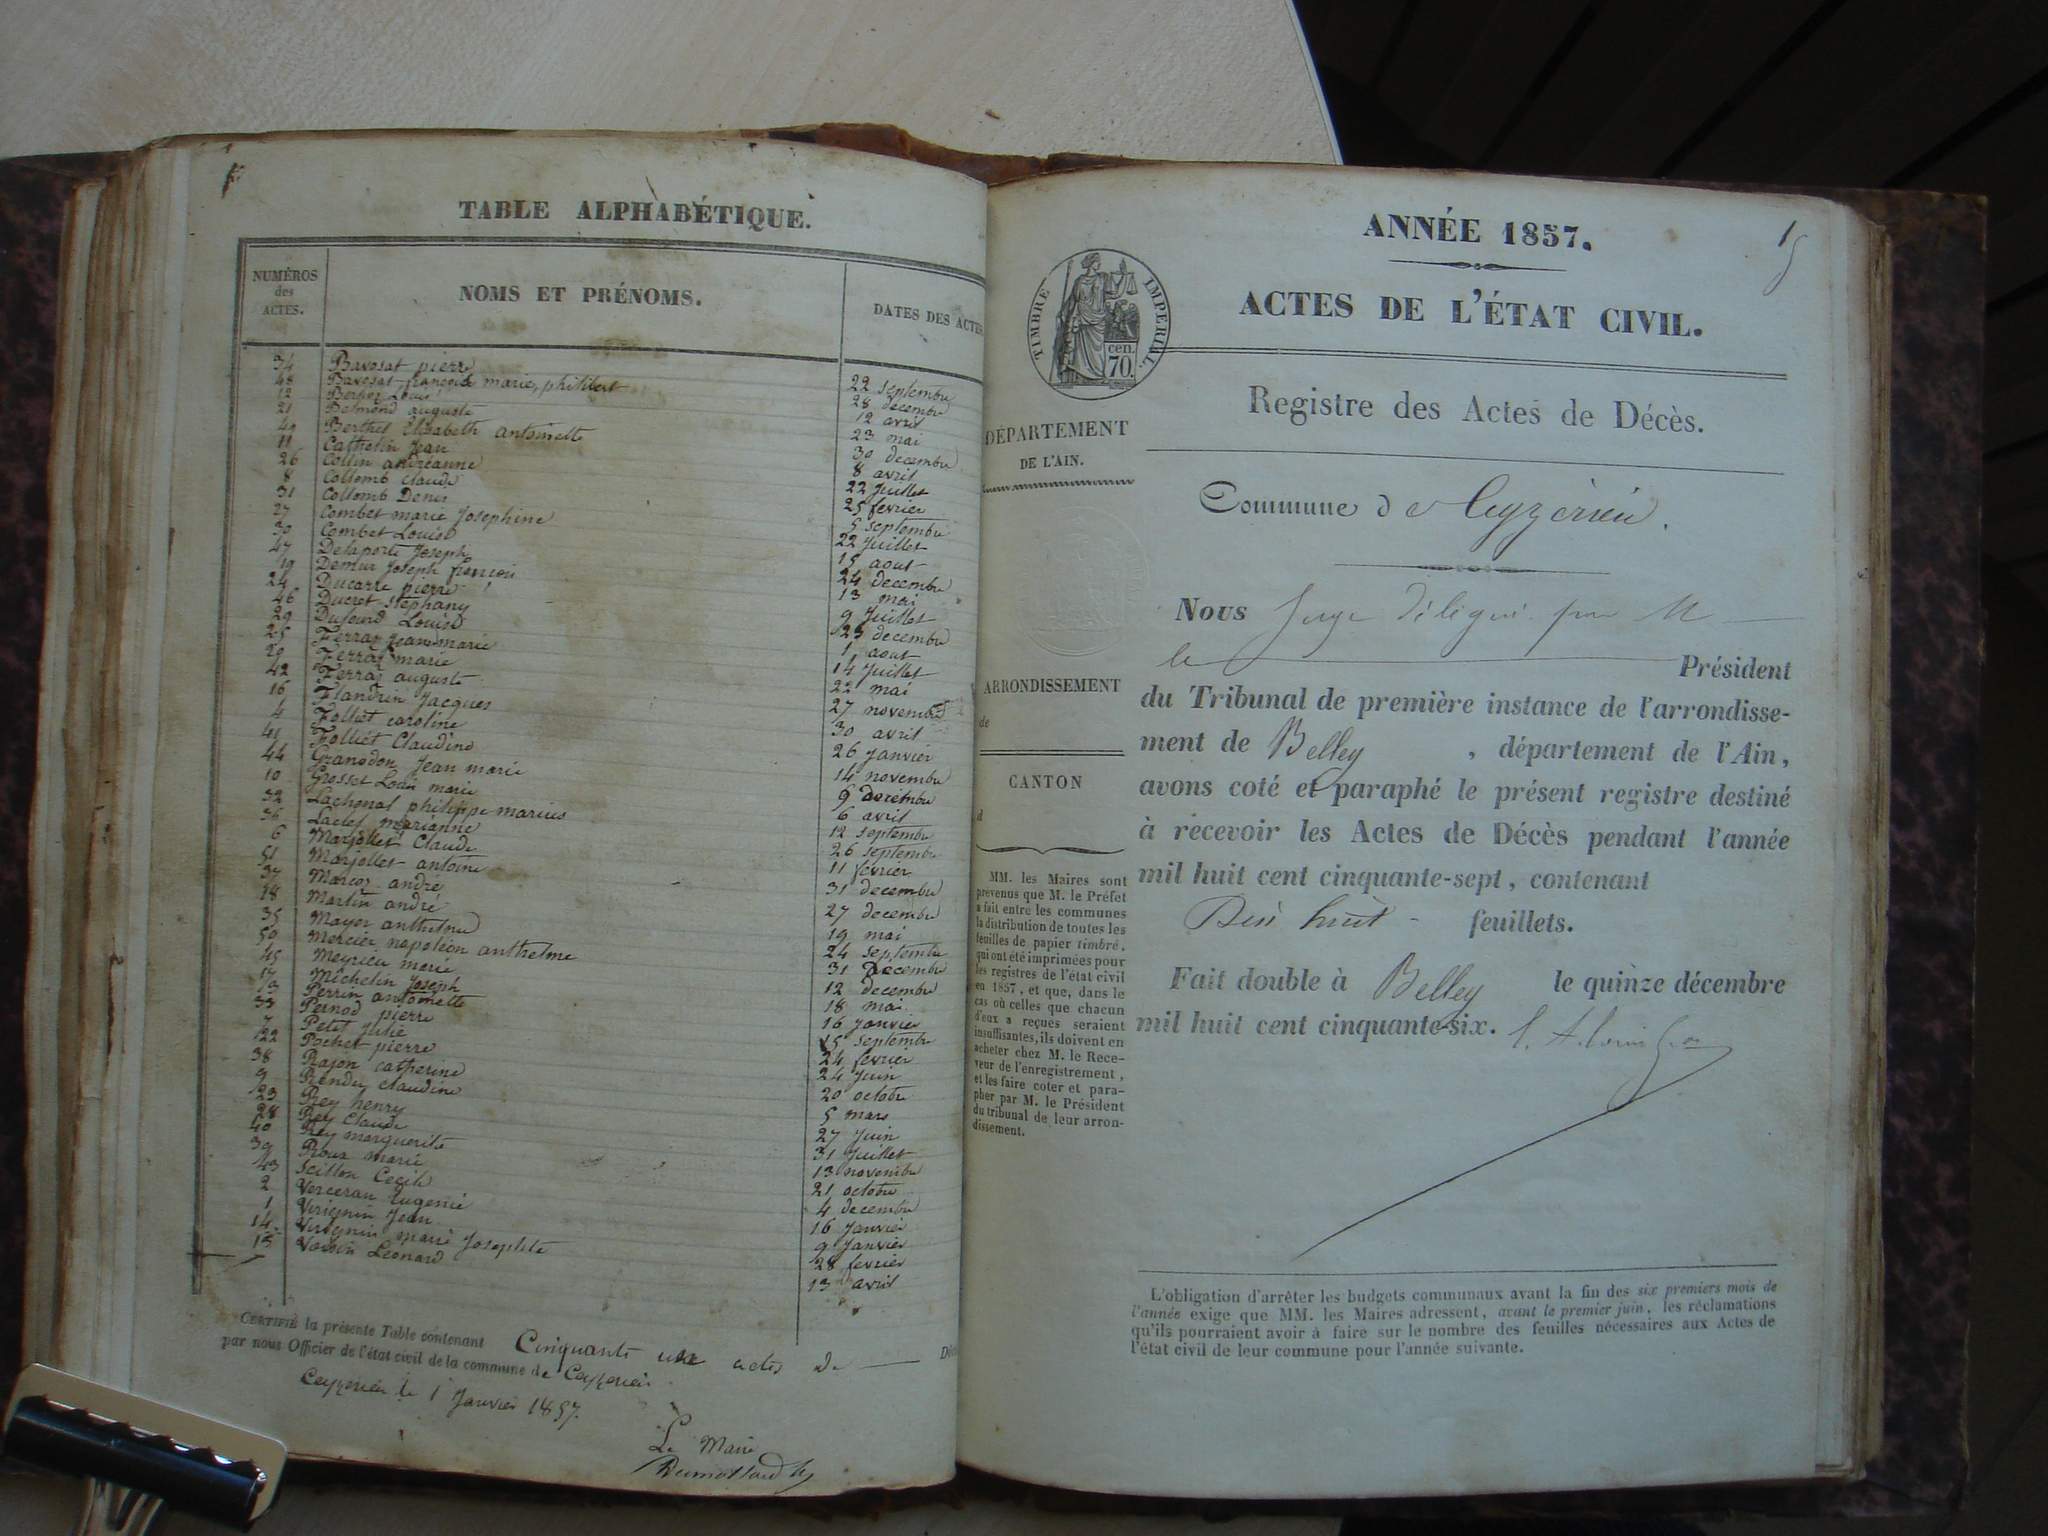 TABLE ALPHABÉTIQUE.
NUMÉROS
des
ACTES.
NOMS ET PRÉNOMS.
DATES DES ACTES
34 Bavosat pierre 22 septembre
48 Bavosat françois marie, philibert 28 decembre
12 Louis 12 avril
21 Belmond auguste 23 mai
49 Berthet Elisabeth antoinette 30 decembre
11 Cathelin Jean 8 avril
26 Collin andréanne 22 Juillet
8 Collomb Claude 25 fevrier
31 Collomb Denis 5 septembre
27 Combet marie Josephine 22 Juillet
30 Combet Louise 15 aout
47 Delaporte Joseph 24 decembre
19 Demur Joseph françois 13 mai
24 Ducarre pierre 9 Juillet
46 Ducret stephany 23 decembre
29 Dufourd Louise 1 aout
25 Ferraz Jean marie 14 Juillet
20 Ferraz marie 22 mai
42 Ferraz auguste 27 novembre
16 Flandrin Jacques 30 avril
4 Folliet caroline 26 Janvier
41 Folliet Claudine 14 novembre
44 Grangdon Jean marie 9 decembre
10 Grosset Louis marie 6 avril
32 Lachenal philippe marius 12 septembre
36 Laclef marianne 26 septembre
6 Marjollet Claude 11 février
51 Marjollet antoine 31 decembre
37 Marcoz andré 27 decembre
18 Martin andré 19 mai
35 Mayer anthelme 24 septembre
50 Mercier napoléon anthelme 31 Decembre
45 Meyrieu marie 12 decembre
17 Michelin Joseph 18 mai
13 Perrin antoinette 16 Janvier
33 Pernod pierre 15 septembre
7 Petit Julie 24 fevrier
22 Pochet pierre 24 Juin
38 Rajon catherine 20 octobre
9 Rendu claudine 5 mars
23 Rey henry 27 Juin
28 Rey Claude 31 Juillet
40 Rey marguerite 13 novembre
39 Roux marie 21 octobre
43 Scitton Cecile 4 decembre
2 Verceran Eugenie 16 Janvier
1 Virignin Jean 9 Janvier
14 Virignin marie Josephte 28 fevrier
15 Voisin Leonard 13 avril
CERTIFIÉ la présente Table contenant Cinquante un actes de
par nous Officier de l'état civil de la commune de Ceyzerieu
Ceyzerieu le 1 Janvier 1857.
Le Maire
Dumollard
ANNÉE 1857.
ACTES DE L'ÉTAT CIVIL.
TIMBRE IMPERIAL.
cen.
70.
Registre des Actes de Décès.
DÉPARTEMENT
DE L'AIN.
Commune de Ceyzérieu.
Nous Juge Délégué par M
le Président
du Tribunal de première instance de l'arrondisse-
ment de Belley, département de l'Ain,
avons coté et paraphé le présent registre destiné
à recevoir les Actes de Décès pendant l'année
mil huit cent cinquante-sept, contenant
Dix huit - feuillets.
Fait double à Belley le quinze décembre
mil huit cent cinquante-six.
ARRONDISSEMENT
de
CANTON
d
MM. les Maires sont
prévenus que M. le Préfet
a fait entre les communes
la distribution de toutes les
feuilles de papier timbré,
qui ont été imprimées pour
les registres de l'état civil
en 1857, et que, dans le
cas où celles que chacun
d'eux a reçues seraient
insuffisantes, ils doivent en
acheter chez M. le Rece-
veur de l'enregistrement,
et les faire coter et para-
pher par M. le Président
du tribunal de leur arron-
dissement.
L'obligation d'arrêter les budgets communaux avant la fin des six premiers mois de
l'année exige que MM. les Maires adressent, avant le premier juin, les réclamations
qu'ils pourraient avoir à faire sur le nombre des feuilles nécessaires aux Actes de
l'état civil de leur commune pour l'année suivante.